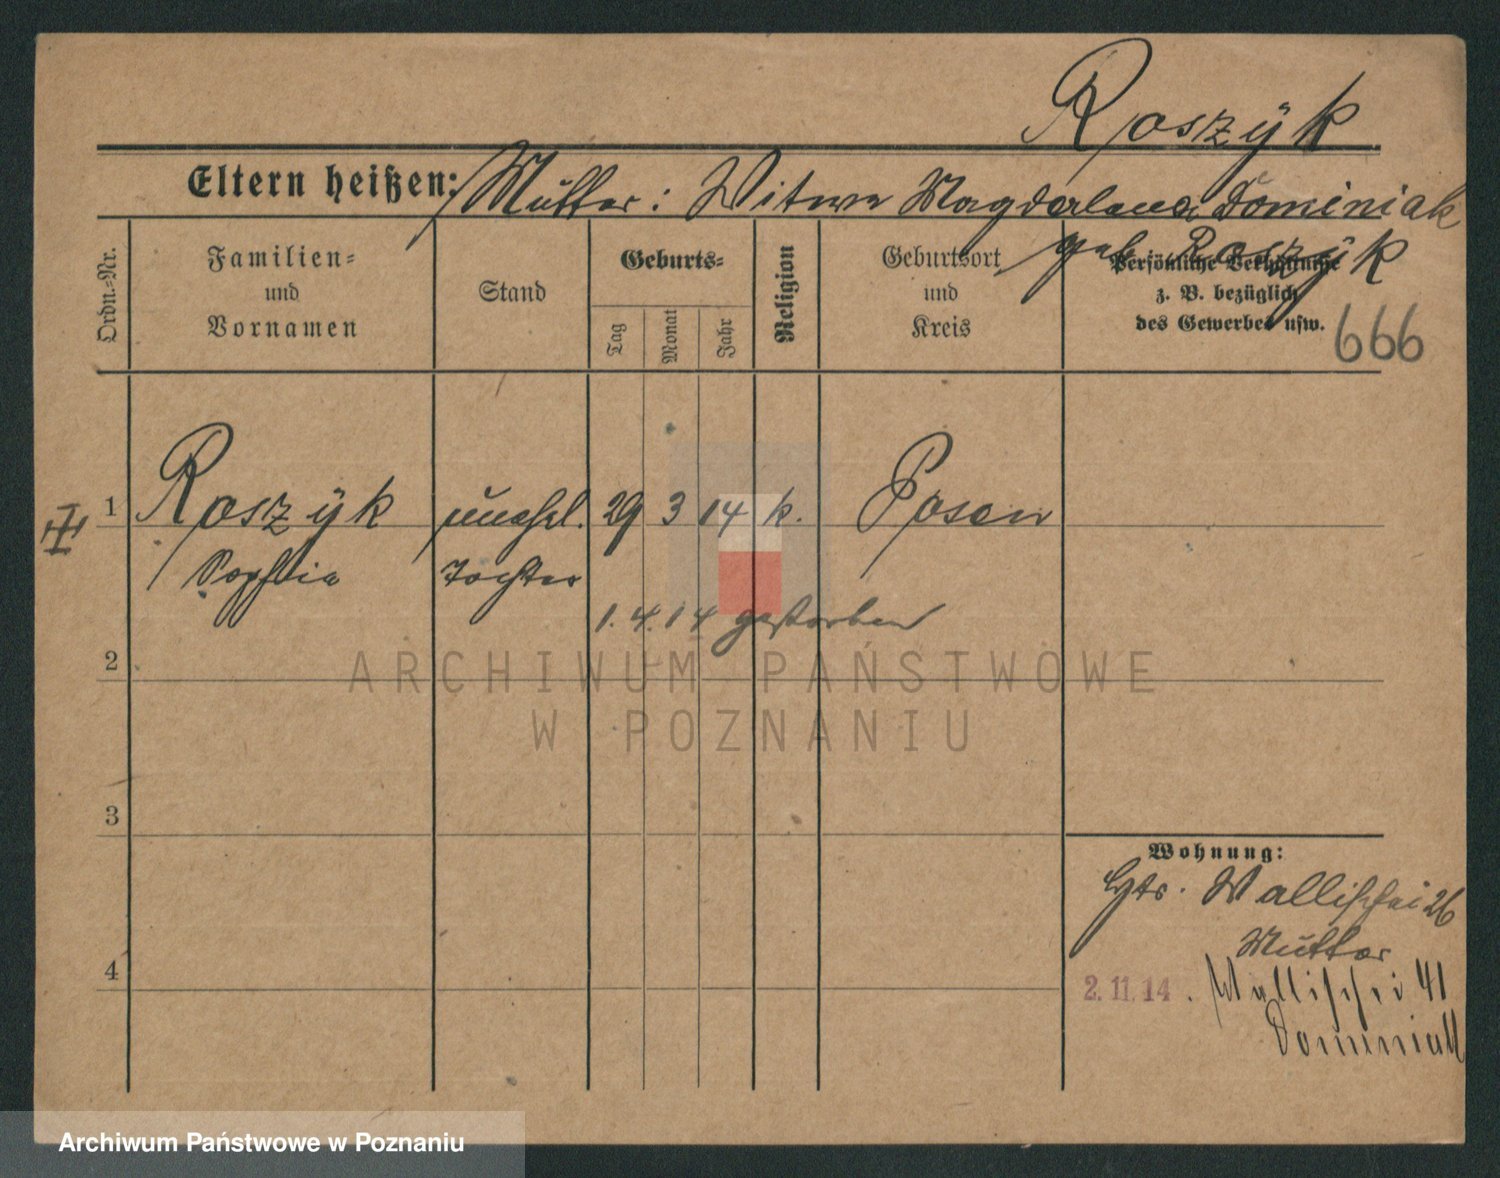 Roszÿk
Eltern heißen: Mutter: Witwe Magdalena Dominiak
geb. Roszÿk
Ordn.=Nr.
Familien=
und
Vornamen
Stand
Geburts=
Tag
Monat
Jahr
Religion
Geburtsort
und
Kreis
Persönliche Verhältnisse
z. B. bezüglich
des Gewerbes usw.
666
1 Roszÿk unehel. 29 3 14 k. Posen
Sophie Tochter
1.4.14 gestorben
2
ARCHIWUM PAŃSTWOWE
W POZNANIU
3
Wohnung:
Wallischei 26
Mutter
4
2.11.14. Wallischei 41
Dominiak
Archiwum Państwowe w Poznaniu